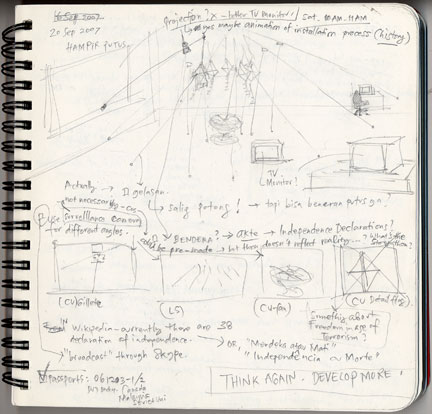 20 Sep 2007
HAMPIR PUTUS
projection? x - better TV Monitor!
sat. 10AM-11AM
yes maybe animation of installation process (history)
TV
(Monitor?
Actually
not necessarily
use surveillance camera
for different angles.
saling potong! → tapi bisa beneran putus gn.
BENDERA? → akte → Independence Declarations?
could be pre-made → but then doesn't reflect reality...
What's the
(CU) Gillete
(LS)
(CU-fan)
(CU Detail flag)
Something about
Freedom image of
Terrorism?
Wikipedia - currently there are 38
declaration of independence.
→ OR, "Merdeka atau Mati"
"Independência ou Morte"
→ "broadcast" through Skype.
Passports: 061203-1/2
THINK AGAIN. DEVELOP MORE!